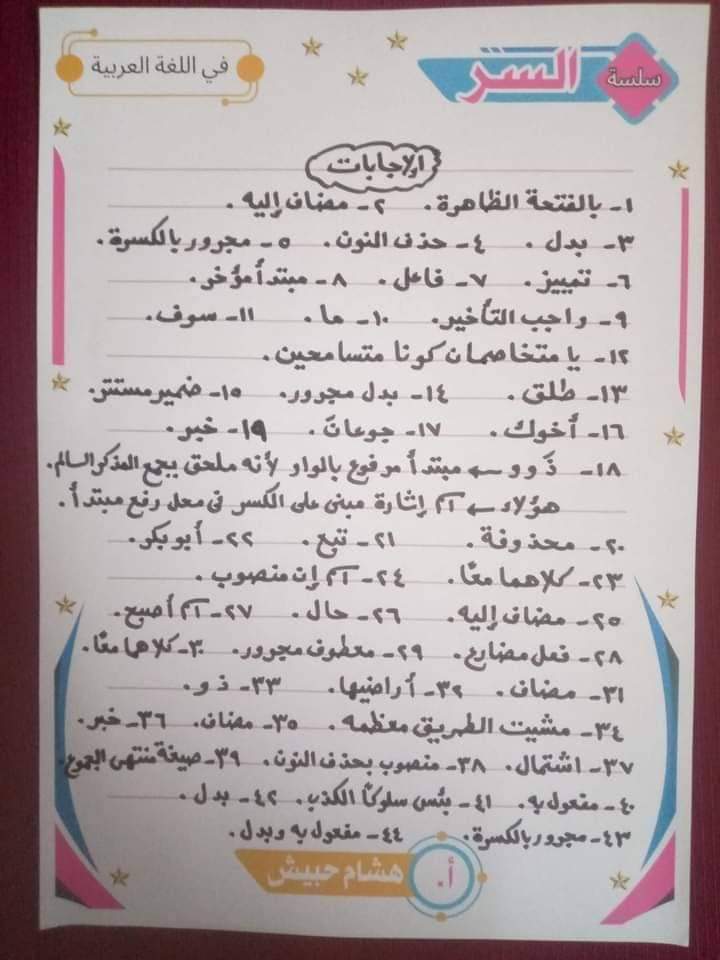 سلسة السر
في اللغة العربية
الإجابات
١- بالفتحة الظاهرة. ٢- مضاف إليه.
٣- بدل. ٤- حذف النون. ٥- مجرور بالكسرة.
٦- تمييز. ٧- فاعل. ٨- مبتدأ مؤخر.
٩- واجب التأخير. ١٠- ما. ١١- سوف.
١٢- يا متخاصمان كونا متسامحين.
١٣- طلق. ١٤- بدل مجرور. ١٥- ضمير مستتر.
١٦- أخوك. ١٧- جوعانَ. ١٩- خبر.
١٨- ذَوو ← مبتدأ مرفوع بالواو لأنه ملحق بجمع المذكر السالم.
هؤلاء ← اسم إشارة مبني على الكسر في محل رفع مبتدأ.
٢٠- محذوفة. ٢١- تبع. ٢٢- أبو بكر.
٢٣- كلاهما معًا. ٢٤- اسم إن منصوب.
٢٥- مضاف إليه. ٢٦- حال. ٢٧- اسم أصبح.
٢٨- فعل مضارع. ٢٩- معطوف مجرور. ٣٠- كلاهما معًا.
٣١- مضاف. ٣٢- أراضيها. ٣٣- ذو.
٣٤- مشيت الطريق معظمه. ٣٥- مضاف. ٣٦- خبر.
٣٧- اشتمال. ٣٨- منصوب بحذف النون. ٣٩- صيغة منتهى الجموع.
٤٠- مفعول به. ٤١- بئس سلوكًا الكذب. ٤٢- بدل.
٤٣- مجرور بالكسرة. ٤٤- مفعول به وبدل.
أ. هشام حبيش